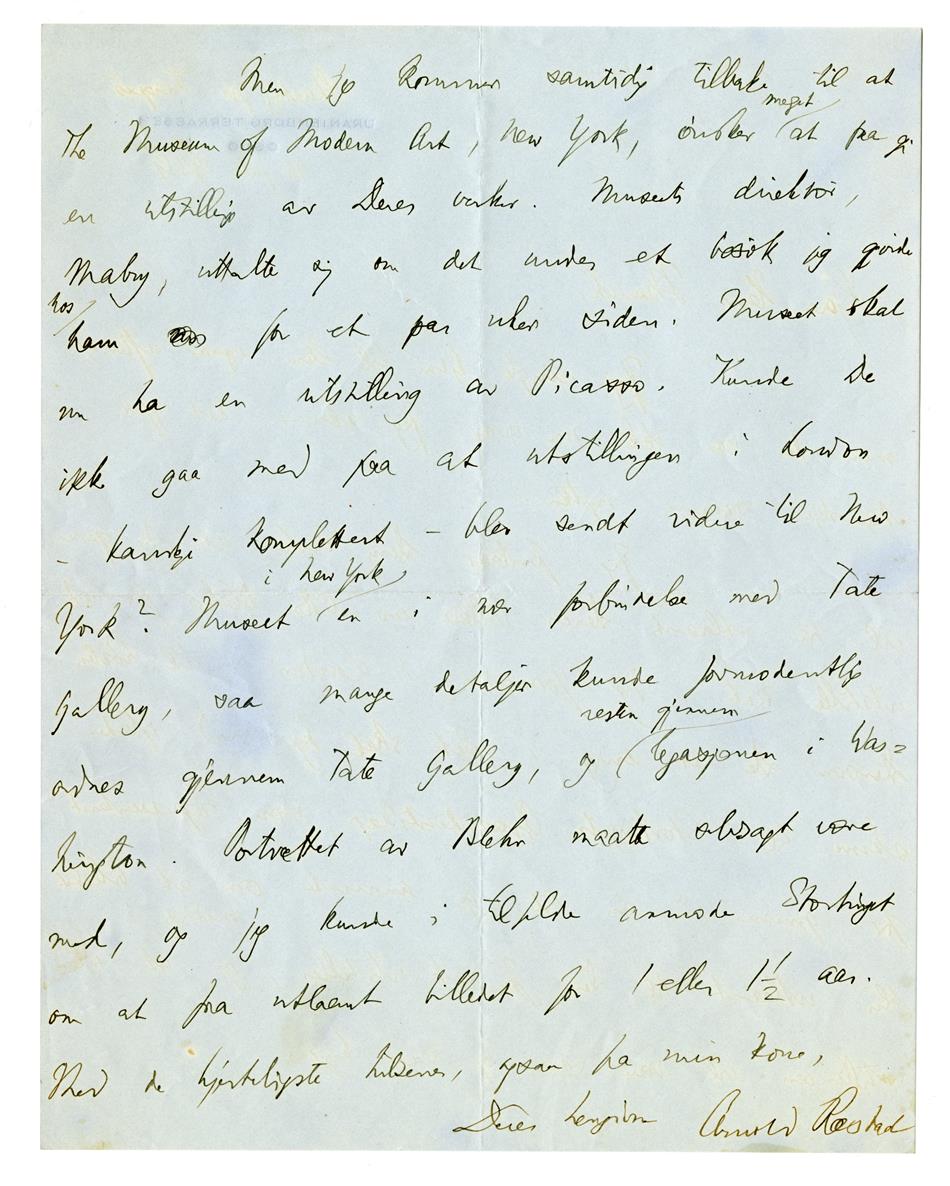 Men jeg kommer samtidig tilbake til at
meget
The Museum of Modern Art, New York, ønsker at faa gi
en utstilling av Deres verker. Museets direktør,
Mabry, uttalte sig om det under et besøk jeg gjorde
hos
ham for et par uker siden. Museet skal
nu ha en utstilling av Picasso. Kunde De
ikke gaa med paa at utstillingen i London
- kanskje komplettert - blev sendt videre til New
i New York
York? Museet er i nær forbindelse med Tate
Gallery, saa mange detaljer kunde formodentlig
resten gjennem
ordnes gjennem Tate Gallery, og legasjonen i Was=
hington. Portrettet av Blehr maatte selvsagt være
med, og jeg kunde i tilfælde anmode Stortinget
om at faa utlaant billedet for 1 eller 1 1/2 aar.
Med de hjerteligste hilsener, ogsaa fra min kone,
Deres hengivne Arnold Ræstad
URANIENBORG TERRASSE